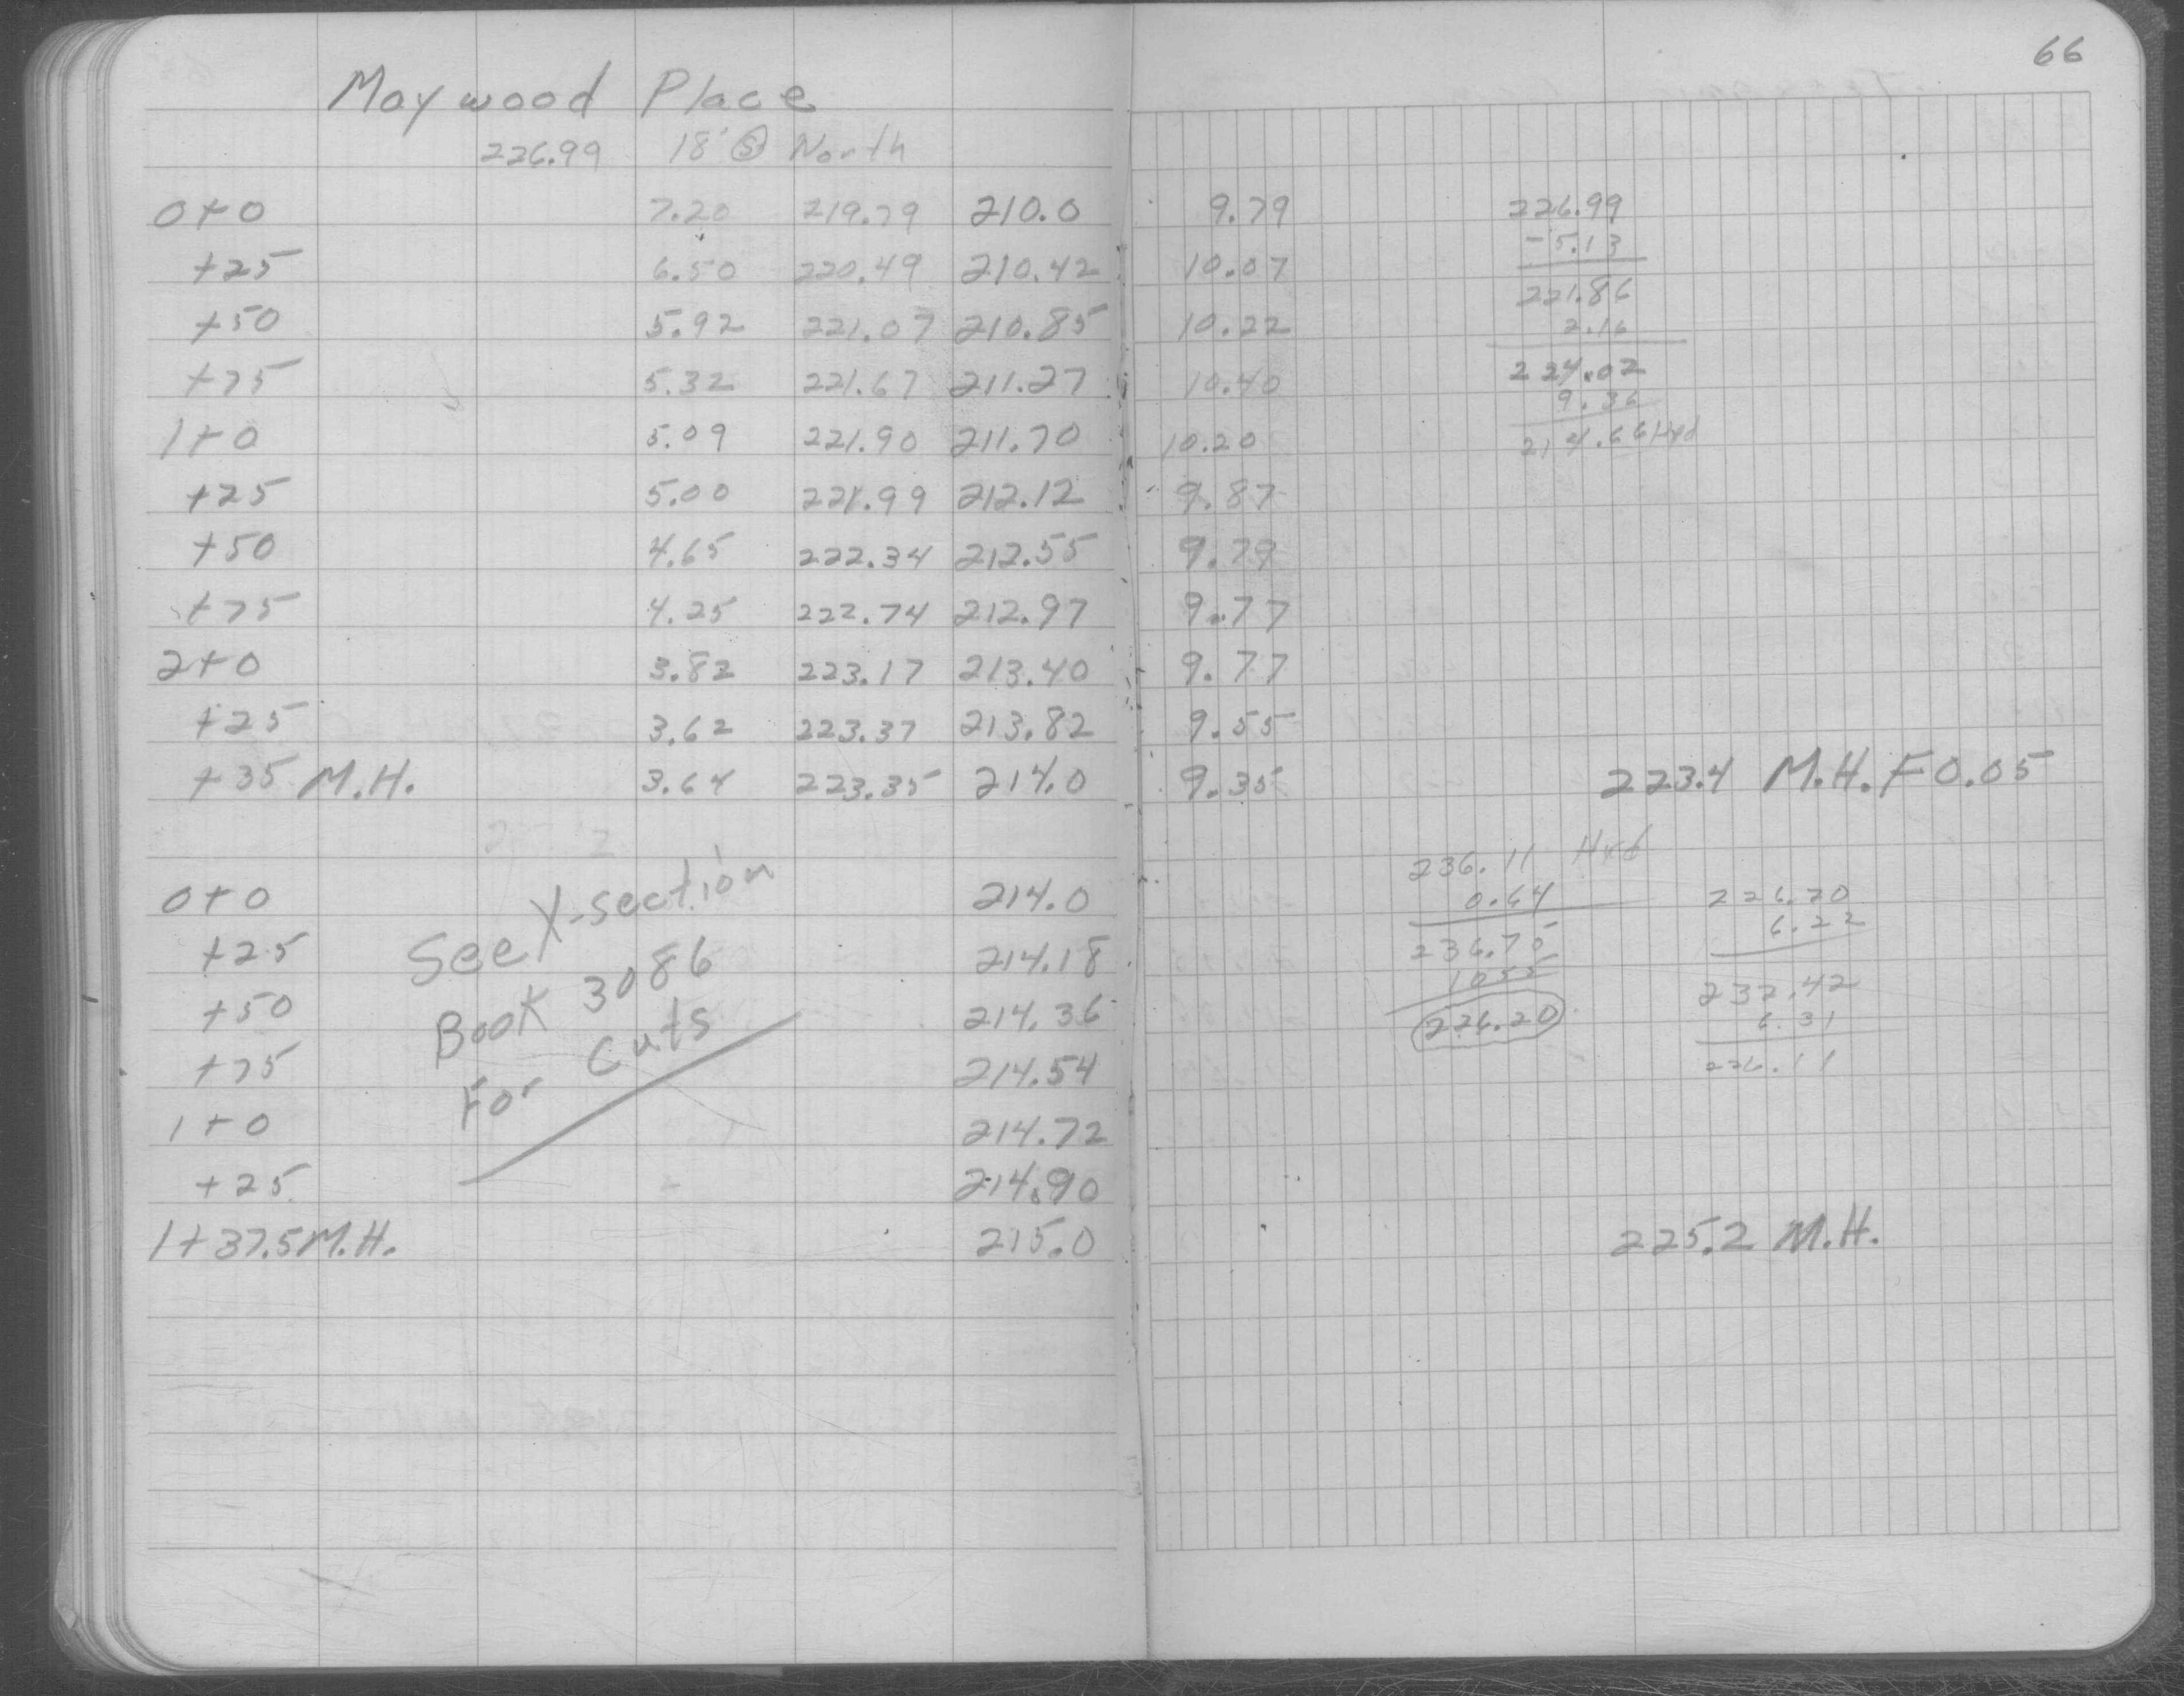 66
Maywood Place
226.99 18' @ North
0+0 7.20 219.79 210.0 9.79
+25 6.50 220.49 210.42 10.07
+50 5.92 221.07 210.85 10.22
+75 5.32 221.67 211.27 10.40
1+0 5.09 221.90 211.70 10.20
+25 5.00 221.99 212.12 9.87
+50 4.65 222.34 212.55 9.79
+75 4.25 222.74 212.97 9.77
2+0 3.82 223.17 213.40 9.77
+25 3.62 223.37 213.82 9.55
+35 M.H. 3.64 223.35 214.0 9.35 223.4 M.H. F 0.05
226.99
-5.13
221.86
2.16
224.02
9.36
214.66 Hyd
0+0 214.0
+25 214.18
+50 214.36
+75 214.54
1+0 214.72
+25 214.90
1+37.5 M.H. 215.0 225.2 M.H.
See X-section
Book 3086
For Cuts
236.11 Hyd
0.64
236.75
1055
226.20
226.20
6.22
232.42
6.31
226.11